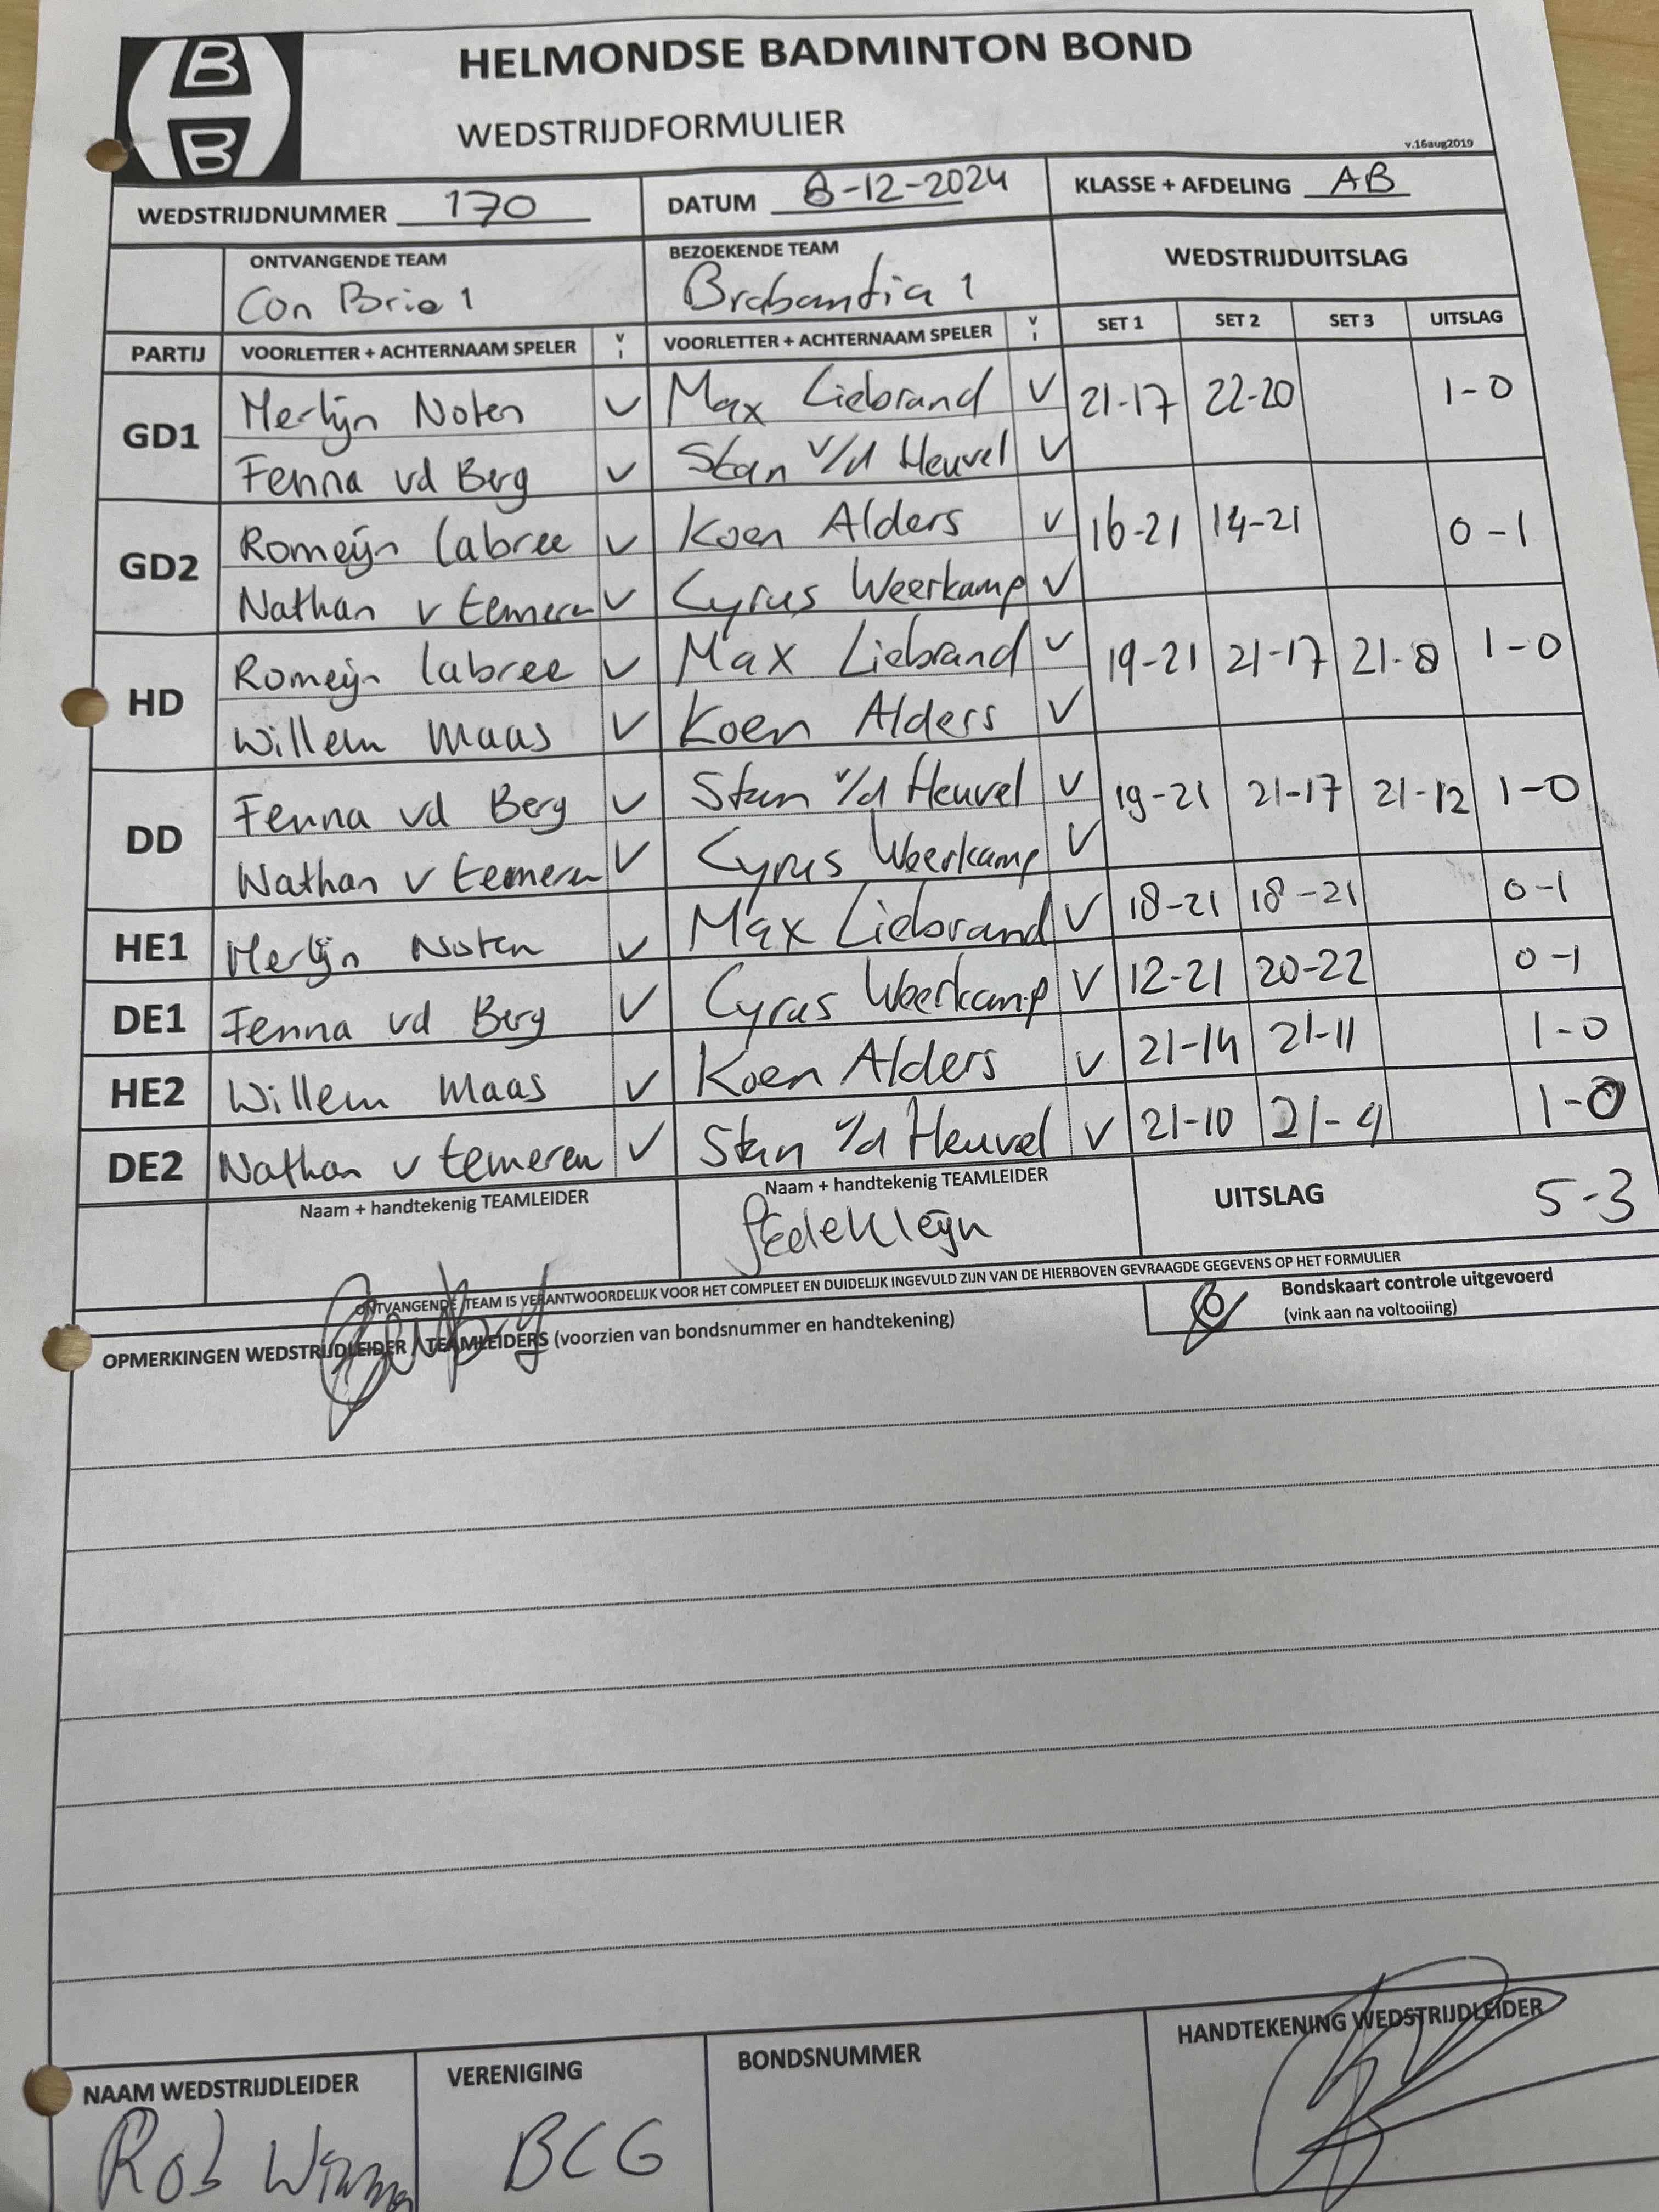 B
B
HELMONDSE BADMINTON BOND
WEDSTRIJDFORMULIER
v.16aug2019
WEDSTRIJDNUMMER 170 DATUM 8-12-2024 KLASSE + AFDELING AB
ONTVANGENDE TEAM BEZOEKENDE TEAM WEDSTRIJDUITSLAG
Con Brio 1 Brabantia 1
PARTIJ VOORLETTER + ACHTERNAAM SPELER V I VOORLETTER + ACHTERNAAM SPELER V I SET 1 SET 2 SET 3 UITSLAG
GD1 Merlijn Noten V Max Liebrand V 21-17 22-20 1-0
Fenna vd Berg V Stan v/d Heuvel V
GD2 Romeijn Labree V Koen Alders V 16-21 14-21 0-1
Nathan v temeren V Cyrus Weerkamp V
HD Romeijn Labree V Max Liebrand V 19-21 21-17 21-8 1-0
Willem Maas V Koen Alders V
DD Fenna vd Berg V Stan v/d Heuvel V 19-21 21-17 21-12 1-0
Nathan v temeren V Cyrus Weerkamp V
HE1 Merlijn Noten V Max Liebrand V 18-21 18-21 0-1
DE1 Fenna vd Berg V Cyrus Weerkamp V 12-21 20-22 0-1
HE2 Willem Maas V Koen Alders V 21-14 21-11 1-0
DE2 Nathan v temeren V Stan v/d Heuvel V 21-10 21-4 1-0
Naam + handtekenig TEAMLEIDER Naam + handtekenig TEAMLEIDER UITSLAG 5-3
ONTVANGENDE TEAM IS VERANTWOORDELIJK VOOR HET COMPLEET EN DUIDELIJK INGEVULD ZIJN VAN DE HIERBOVEN GEVRAAGDE GEGEVENS OP HET FORMULIER
OPMERKINGEN WEDSTRIJDLEIDER / TEAMLEIDERS (voorzien van bondsnummer en handtekening)
Bondskaart controle uitgevoerd
(vink aan na voltooiing)
NAAM WEDSTRIJDLEIDER VERENIGING BONDSNUMMER HANDTEKENING WEDSTRIJDLEIDER
Rob BCG